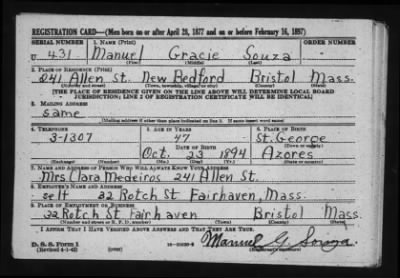 REGISTRATION CARD—(Men born on or after April 28, 1877 and on or before February 16, 1897)
SERIAL NUMBER 1. NAME (Print) ORDER NUMBER
U 431 Manuel Gracie Souza
(First) (Middle) (Last)
2. PLACE OF RESIDENCE (Print)
241 Allen St. New Bedford Bristol Mass.
(Number and street) (Town, township, village, or city) (County) (State)
[THE PLACE OF RESIDENCE GIVEN ON THE LINE ABOVE WILL DETERMINE LOCAL BOARD
JURISDICTION; LINE 2 OF REGISTRATION CERTIFICATE WILL BE IDENTICAL]
3. MAILING ADDRESS
same
[Mailing address if other than place indicated on line 2. If same insert word same]
4. TELEPHONE 5. AGE IN YEARS 6. PLACE OF BIRTH
3-1307 47 St. George
DATE OF BIRTH (Town or county)
Oct. 23 1894 Azores
(Exchange) (Number) (Mo.) (Day) (Yr.) (State or country)
7. NAME AND ADDRESS OF PERSON WHO WILL ALWAYS KNOW YOUR ADDRESS
Mrs Clara Medeiros 241 Allen St.
8. EMPLOYER'S NAME AND ADDRESS
self 22 Rotch St Fairhaven, Mass.
9. PLACE OF EMPLOYMENT OR BUSINESS
22 Rotch St Fairhaven Bristol Mass.
(Number and street or R. F. D. number) (Town) (County) (State)
I AFFIRM THAT I HAVE VERIFIED ABOVE ANSWERS AND THAT THEY ARE TRUE.
D. S. S. Form 1
(Revised 4-1-42) Manuel G. Souza